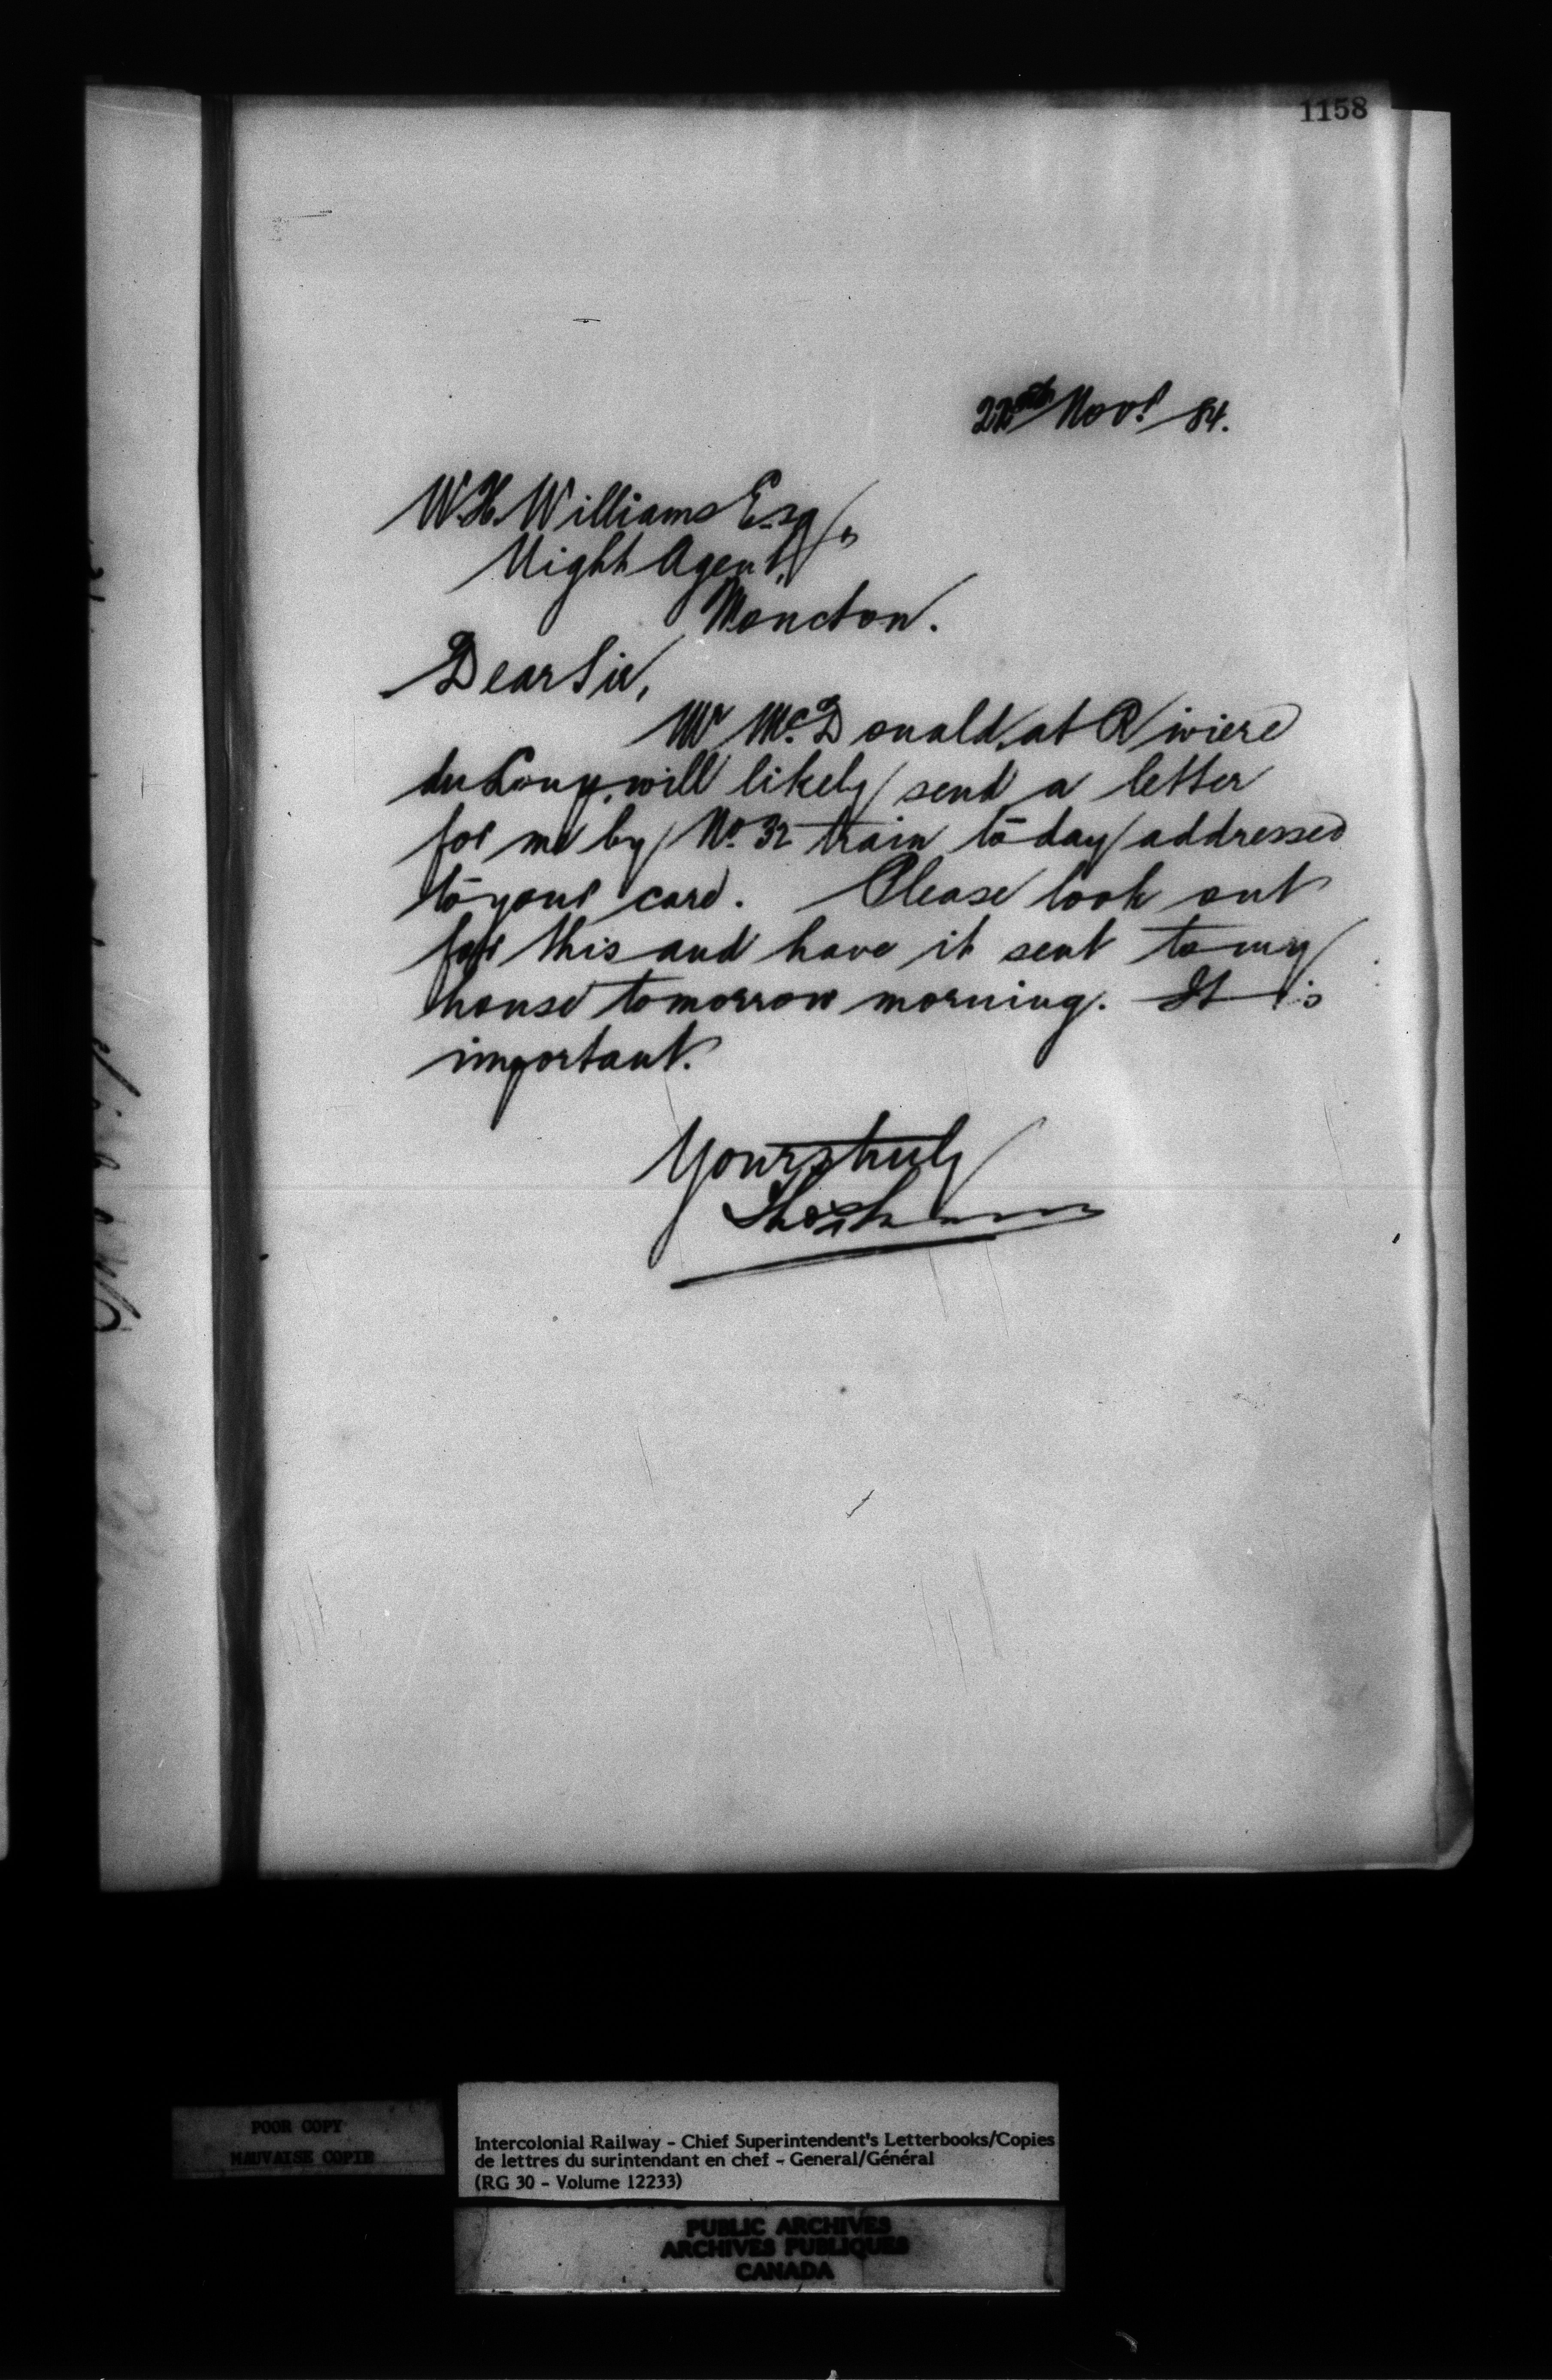 1158
22nd Novr 84.
W. H. Williams Esq
Night Agent,
Moncton.
Dear Sir,
Mr McDonald, at Riviere
du Loup, will likely send a letter
for me by No. 32 train today addressed
to your care. Please look out
for this and have it sent to my
house tomorrow morning. It is
important.
Yours truly
POOR COPY
MAUVAISE COPIE
Intercolonial Railway - Chief Superintendent's Letterbooks/Copies
de lettres du surintendant en chef - General/Général
(RG 30 - Volume 12233)
PUBLIC ARCHIVES
ARCHIVES PUBLIQUES
CANADA